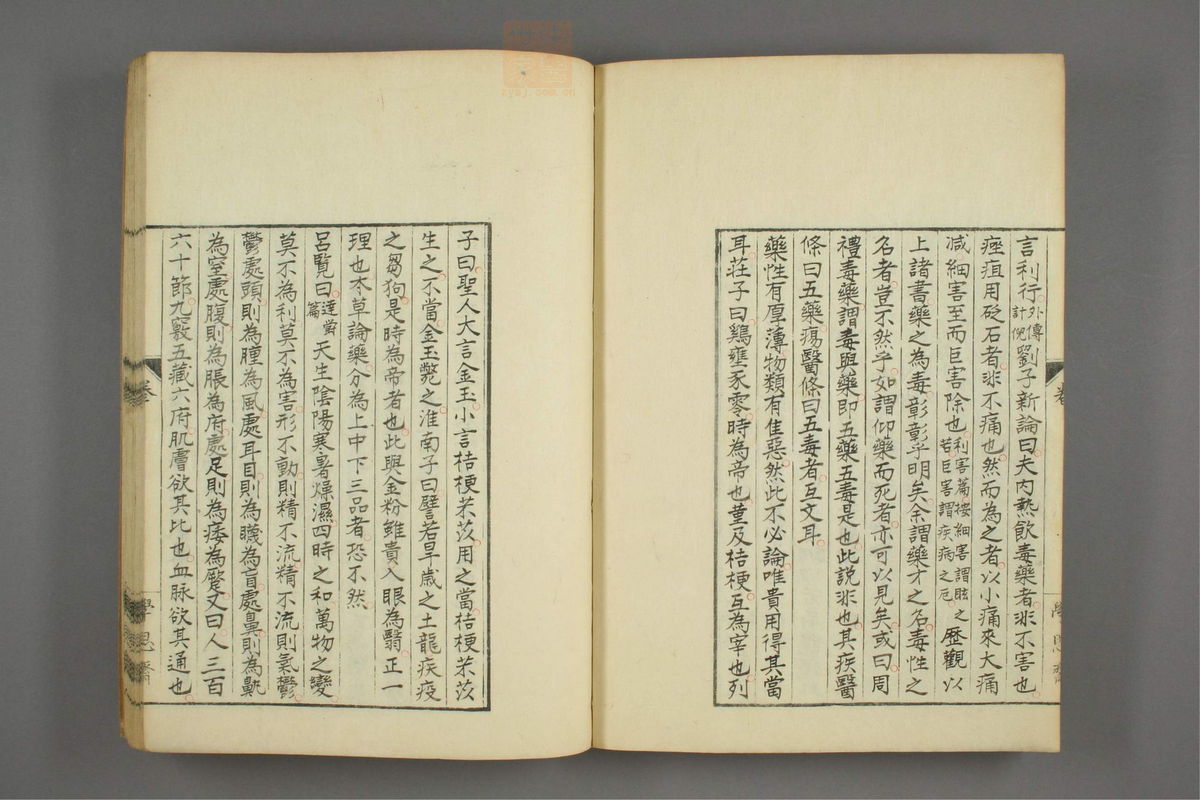 言利行外傳計倪劉子新論曰夫内熱飲毒藥者非不害也
痤疽用砭石者非不痛也然而為之者以小痛來大痛
減細害至而巨害除也利害篇按細害謂眩之若巨害謂疾病之厄歷觀以
上諸書藥之為毒彰彰乎明矣余謂藥才之名毒性之
名者豈不然乎如謂仰藥而死者亦可以見矣或曰周
禮毒藥謂毒與藥即五藥五毒是也此說非也其疾醫
條曰五藥瘍醫條曰五毒者互文耳
藥性有厚薄物類有隹惡然此不必論唯貴用得其當
耳莊子曰鷄壅豕零時為帝也菫及桔梗互為宰也列
子曰聖人大言金玉小言桔梗芣苡用之當桔梗芣苡
生之不當金玉斃之淮南子曰譬若旱歲之土龍疾疫
之芻狗是時為帝者也此與金粉雖貴入眼為翳正一
理也本草論藥分為上中下三品者恐不然
呂覽曰達鬱篇天生陰陽寒暑燥濕四時之和萬物之變
莫不為利莫不為害形不動則精不流精不流則氣鬱
鬱處頭則為腫為風處耳目則為䁾為盲處鼻則為鼽
為窒處腹則為脹為府處足則為痿為蹷又曰人三百
六十節九竅五藏六府肌膚欲其比也血脉欲其通也
卷
學思齋
卷
學思齋